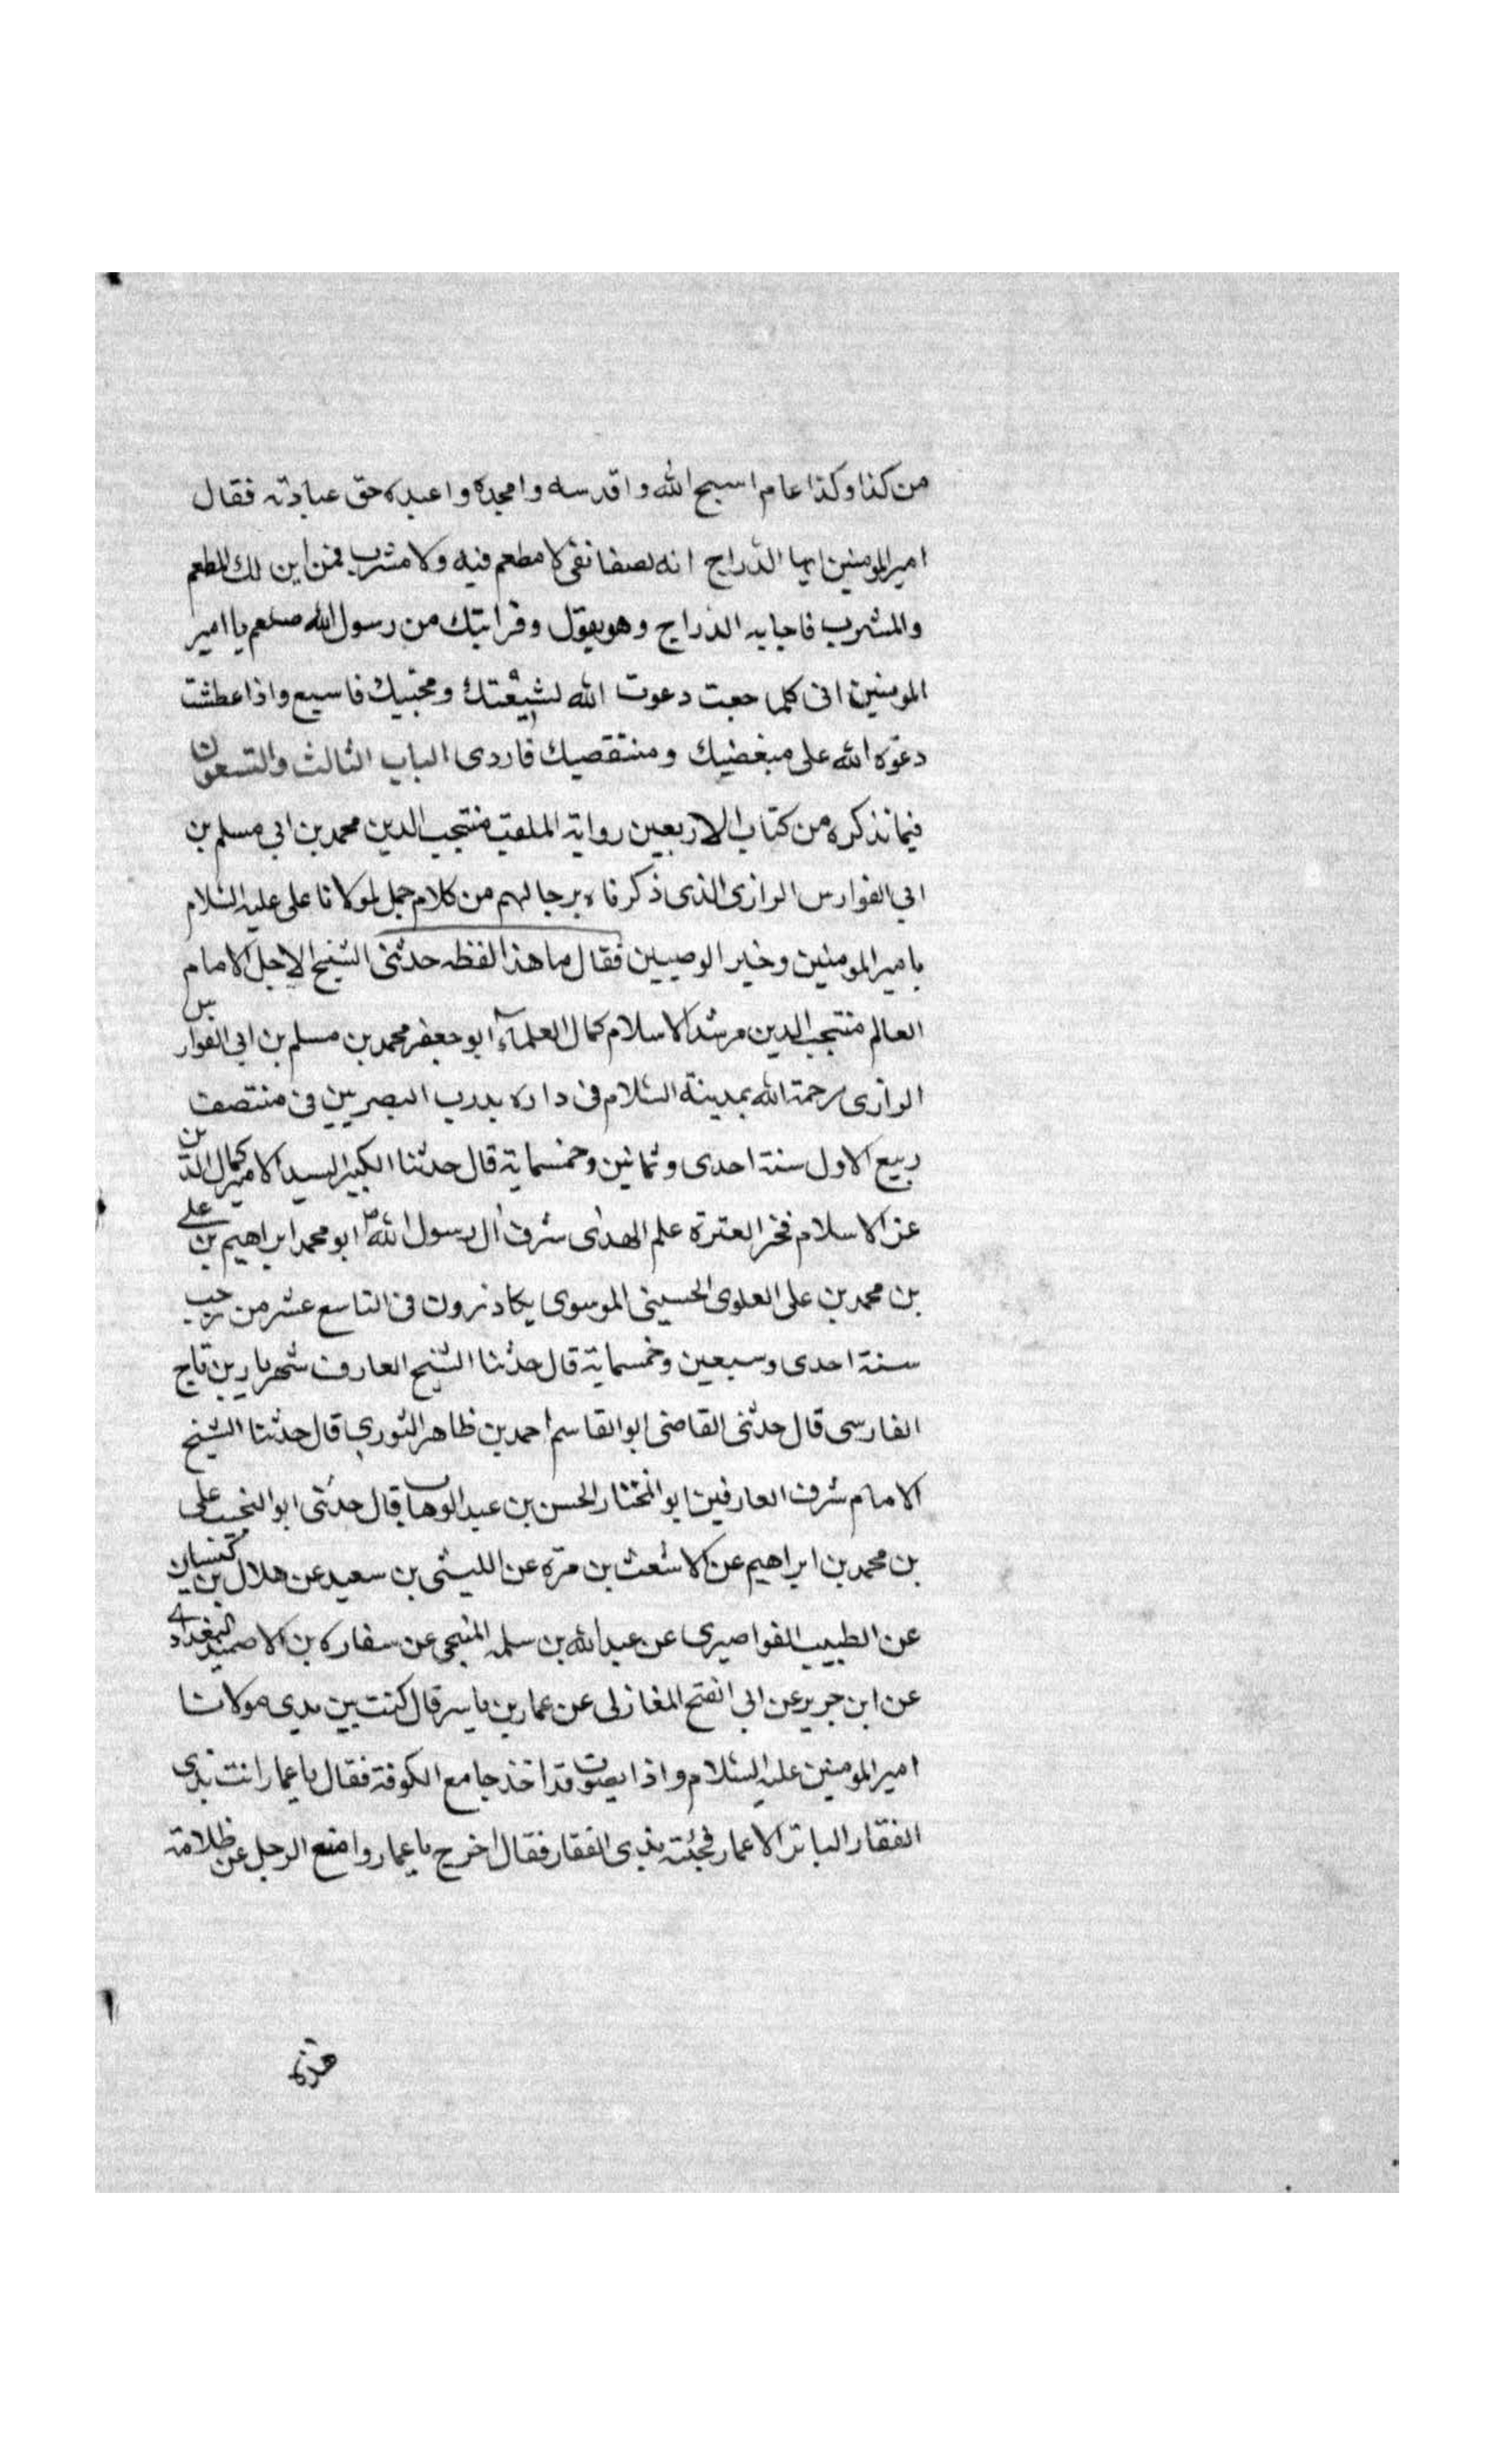 من كذا وكذا عام اسبح الله واقدسه وامجده واعبده حق عبادته فقال
امير المومنين ايها الدراج انه لصفا نقى لا مطعم فيه ولا مشرب فمن اين لك المطعم
والمشرب فاجابه الدراج وهو يقول وقرابتك من رسول الله صلعم يا امير
المومنين انى كلما جعت دعوت الله لشيعتك ومحبيك فاسبع واذا عطشت
دعوه الله على مبغضيك ومنتقصيك فاردى الباب الثالث والتسعون
فيما نذكره من كتاب الاربعين رواية الملقب منتجب الدين محمد بن ابي مسلم بن
ابي الفوارس الرازى الذى ذكرناه برجالهم من كلام جمل لمولانا على عليه السلام
بامير المومنين وخير الوصيين فقال ما هذا لفظه حدثنى الشيخ الاجل الامام
العالم منتجب الدين مرشد الاسلام كمال العلماء ابو جعفر محمد بن مسلم بن ابي الفوارس
الرازى رحمة الله بمدينة السلام فى داره بدرب البصريين فى منتصف
ربيع الاول سنة احدى وثمانين وخمسماية قال حدثنا الكبير السيد الامير كمال الدين
عز الاسلام فخر العترة علم الهدى شرف آل رسول الله ص ابو محمد ابراهيم بن على
بن محمد بن على العلوى الحسينى الموسوى بكاذرون فى التاسع عشر من رجب
سنة احدى وسبعين وخمسماية قال حدثنا الشيخ العارف شهريار بن تاج
الفارسى قال حدثنى القاضى ابو القاسم احمد بن ظاهر الثوري قال حدثنا الشيخ
الامام شرف العارفين ابو المختار الحسن بن عبد الوهاب قال حدثنى ابو النجيب على
بن محمد بن ابراهيم عن الاشعث بن مرة عن الليثى بن سعيد عن هلال بن كيسان
عن الطبيب الفواصيرى عن عبد الله بن سلمه المنبجى عن سفاره بن الاصميد البغدادى
عن ابن جرير عن ابي الفتح المغازلى عن عمار بن ياسر قال كنت بين يدي مولانا
امير المومنين عليه السلام واذا بصوت قد اخذ جامع الكوفة فقال يا عمار انت بذى
الفقار الباتر الاعمار فجئته بذى الفقار فقال اخرج يا عمار وامنع الرجل عن ظلامة
هذه